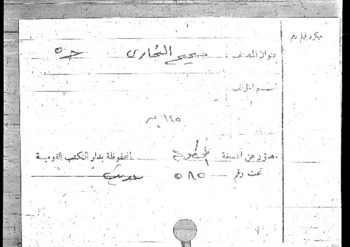 ميكروفيلم رقم
عنوان المصنف : صحيح البخارى حـ ٥
اسم المؤلف :
١٢٥
مصور عن النسخة المحفوظة بدار الكتب القومية
تحت رقم ٥٨٥ حديث